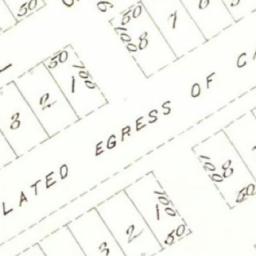 50
6
50
100
8
7
6
5
50
100
3
2
1
LATED EGRESS OF CA
100
8
50
3
2
1
100
50